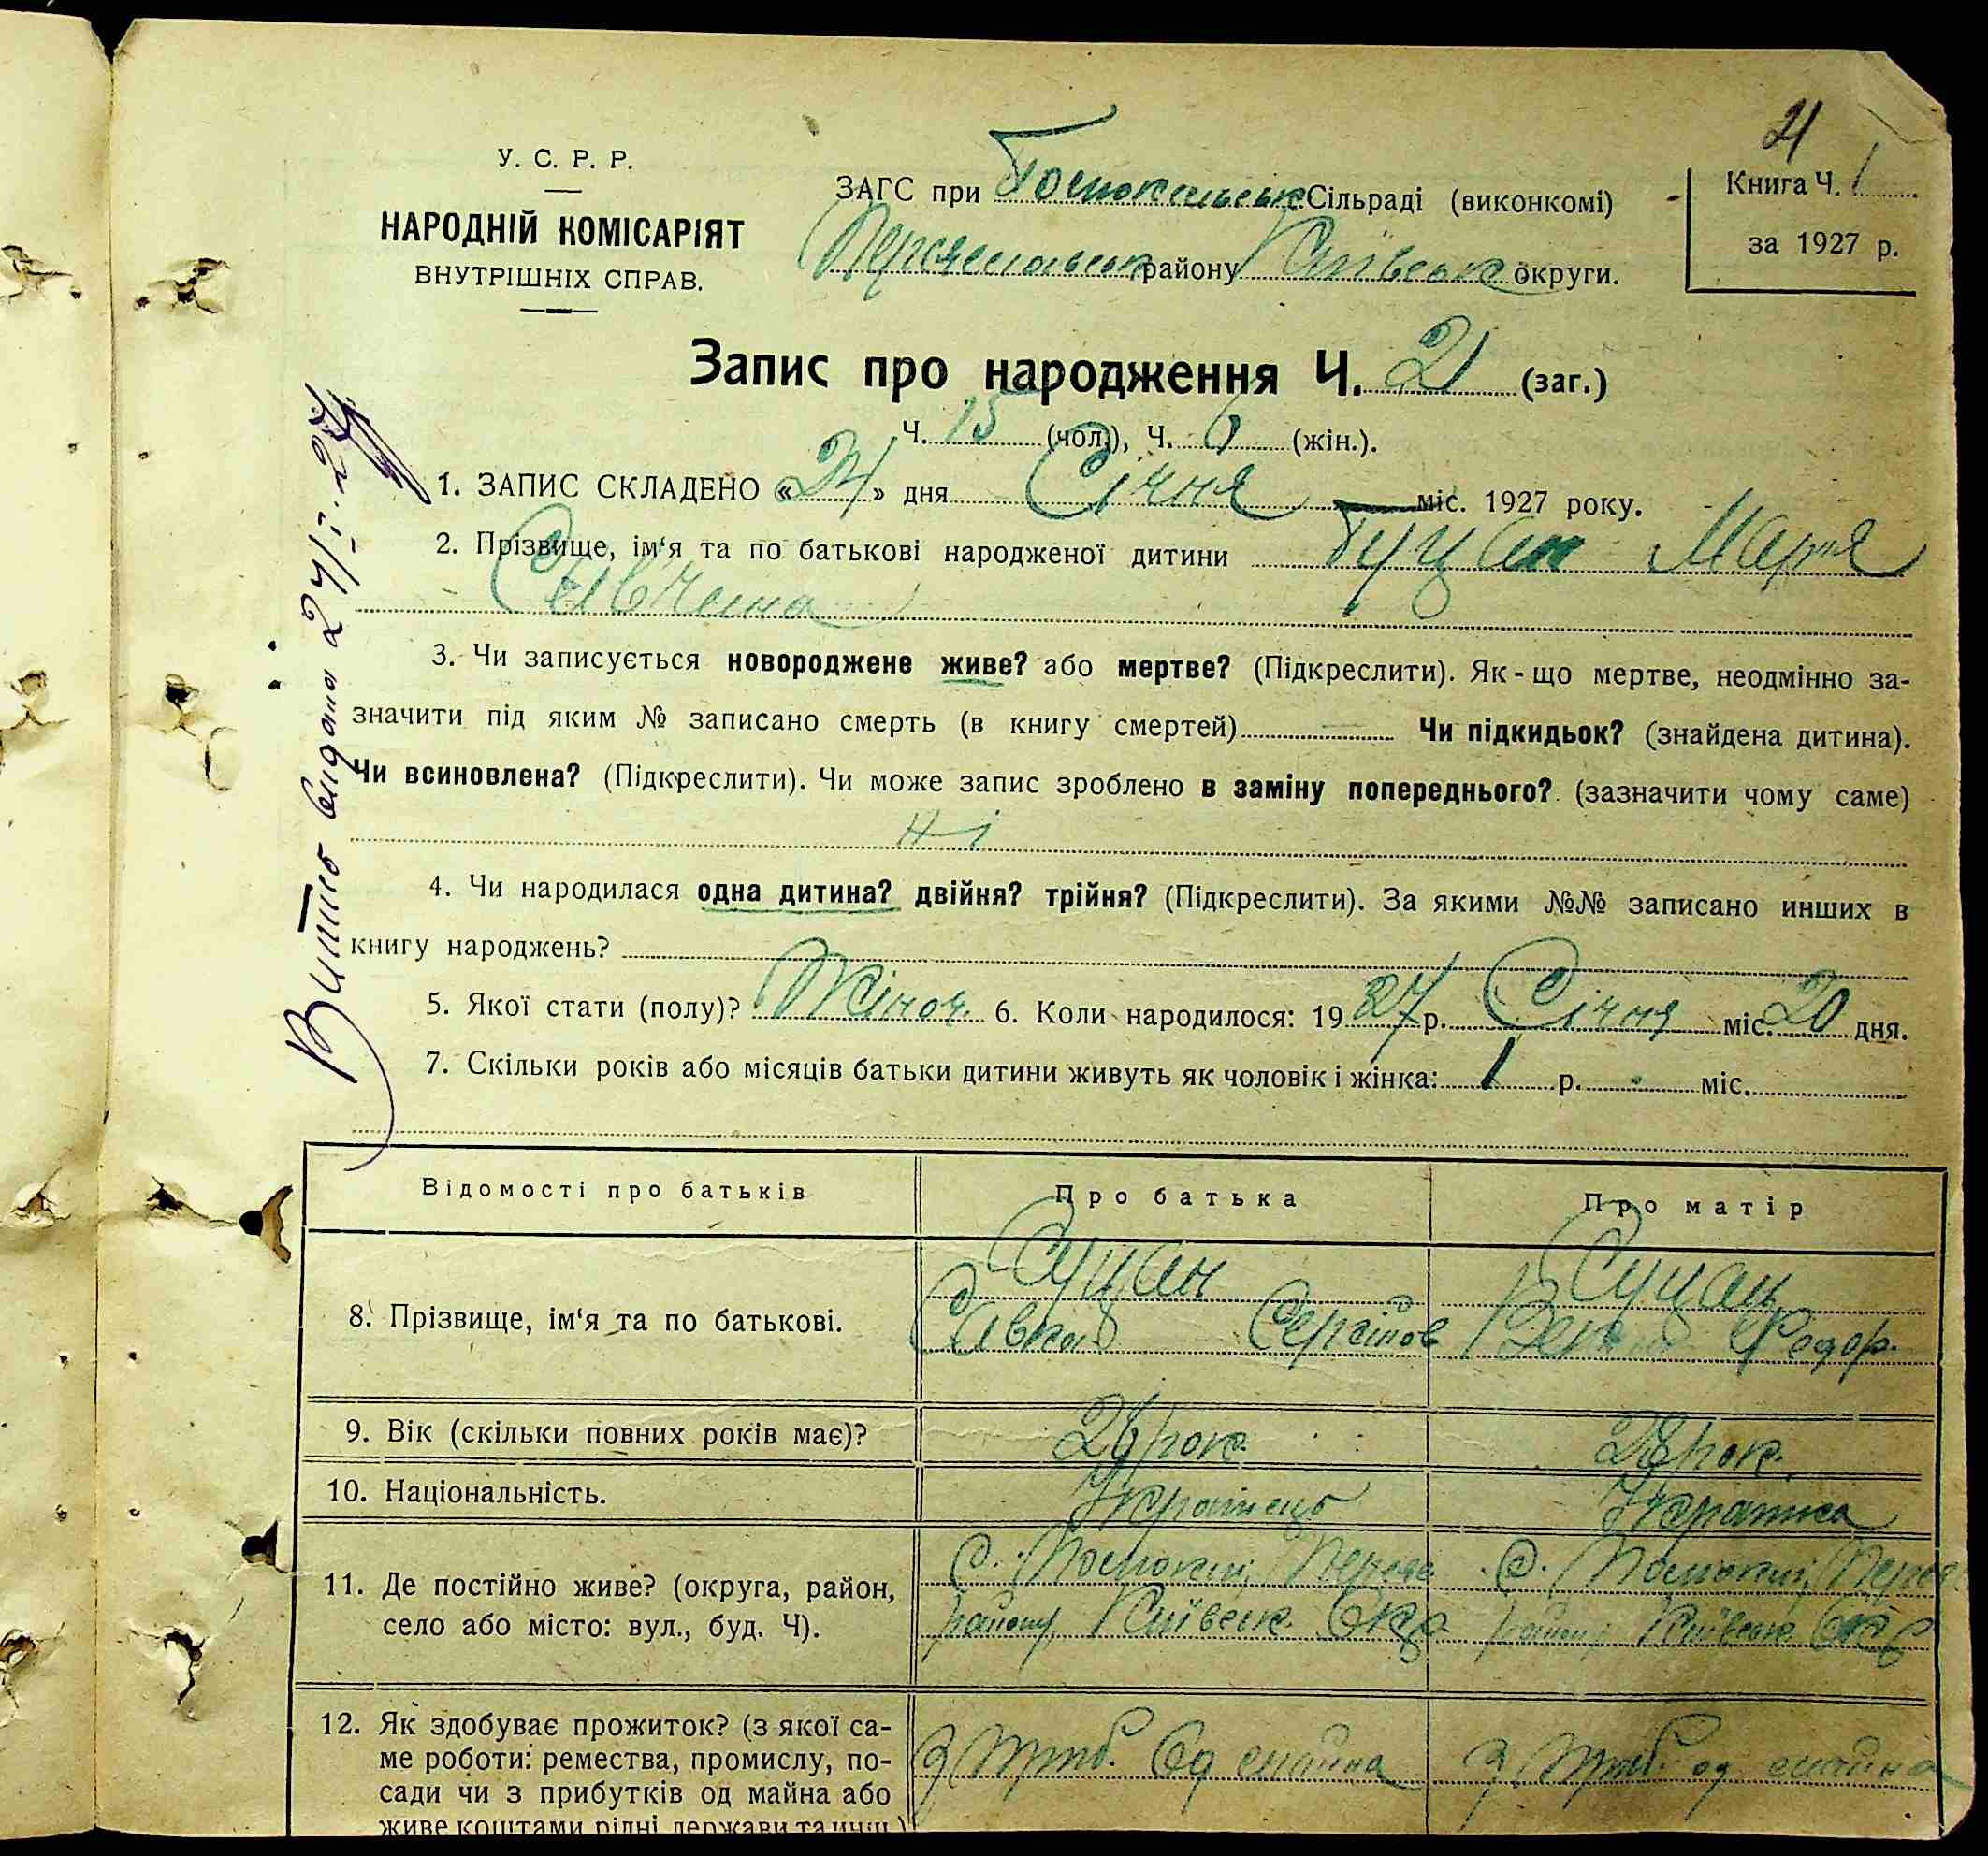 21
У. С. Р. Р.
НАРОДНІЙ КОМІСАРІЯТ
ВНУТРІШНІХ СПРАВ.
ЗАГС при Помокельськ. Сільраді (виконкомі)
Переяславськ району Київськ округи.
Книга Ч. 1
за 1927 р.
Запис про народження Ч. 21 (заг.)
Ч. 15 (чол.), Ч. 6 (жін.).
1. ЗАПИС СКЛАДЕНО «24» дня Січня міс. 1927 року.
2. Прізвище, ім‘я та по батькові народженої дитини Гуцан Марія
Савічна
3. Чи записується новороджене живе? або мертве? (Підкреслити). Як-що мертве, неодмінно за-
значити під яким № записано смерть (в книгу смертей) Чи підкидьок? (знайдена дитина).
Чи всиновлена? (Підкреслити). Чи може запис зроблено в заміну попереднього? (зазначити чому саме)
ні
4. Чи народилася одна дитина? двійня? трійня? (Підкреслити). За якими №№ записано инших в
книгу народжень?
5. Якої стати (полу)? Жіноч. 6. Коли народилося: 1927 р. Січня міс. 20 дня.
7. Скільки років або місяців батьки дитини живуть як чоловік і жінка: 1 р. - міс.
Витяг видано 24/I-27
Відомості про батьків Про батька Про матір
8. Прізвище, ім‘я та по батькові. Гуцан Гуцан
Савка Сергійов Федор.
9. Вік (скільки повних років має)? 26 рок. 28 рок.
10. Національність. Українець Українка
11. Де постійно живе? (округа, район, С. Помоклі, Переяс. С. Помоклі, Переяс.
село або місто: вул., буд. Ч). району Київськ. Окр. району Київськ. Окр
12. Як здобуває прожиток? (з якої са-
ме роботи: ремества, промислу, по- З приб. Од майна З приб. од майна
сади чи з прибутків од майна або
живе коштами рідні, держави та инш.)